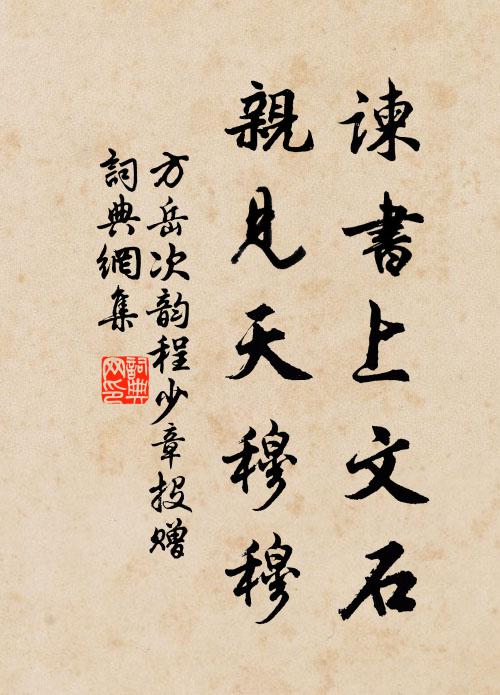 諫書上文石
親見天穆穆
方岳次韵程少章投贈
詞典網集
詞典網印